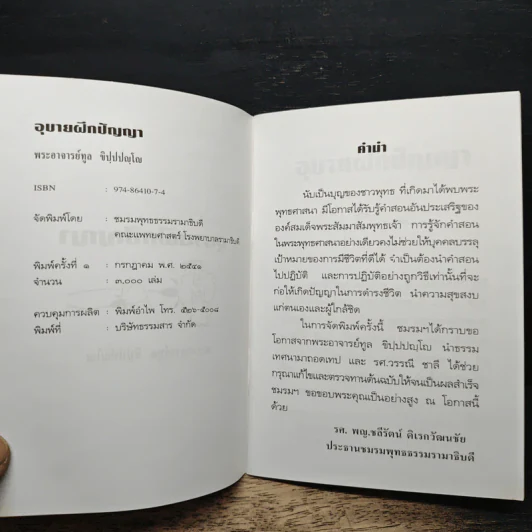 อุบายฝึกปัญญา
พระอาจารย์ทูล ขิปฺปปญฺโญ
ISBN : 974-86410-7-4
จัดพิมพ์โดย : ชมรมพุทธธรรมรามาธิบดี
คณะแพทยศาสตร์ โรงพยาบาลรามาธิบดี
พิมพ์ครั้งที่ ๑ : กรกฎาคม พ.ศ. ๒๕๔๑
จำนวน : ๓,๐๐๐ เล่ม
ควบคุมการผลิต : พิมพ์อำไพ โทร. ๕๒๖-๕๐๐๘
พิมพ์ที่ : บริษัทธรรมสาร จำกัด
คำนำ
นับเป็นบุญของชาวพุทธ ที่เกิดมาได้พบพระ
พุทธศาสนา มีโอกาสได้รับรู้คำสอนอันประเสริฐของ
องค์สมเด็จพระสัมมาสัมพุทธเจ้า การรู้จักคำสอน
ในพระพุทธศาสนาอย่างเดียวคงไม่ช่วยให้บุคคลบรรลุ
เป้าหมายของการมีชีวิตที่ดีได้ จำเป็นต้องนำคำสอน
ไปปฏิบัติ และการปฏิบัติอย่างถูกวิธีเท่านั้นที่จะ
ก่อให้เกิดปัญญาในการดำรงชีวิต นำความสุขสงบ
แก่ตนเองและผู้ใกล้ชิด
ในการจัดพิมพ์ครั้งนี้ ชมรมฯได้กราบขอ
โอกาสจากพระอาจารย์ทูล ขิปฺปปญฺโญ นำธรรม
เทศนามาถอดเทป และ รศ.วรรณี ชาลี ได้ช่วย
กรุณาแก้ไขและตรวจทานต้นฉบับให้จนเป็นผลสำเร็จ
ชมรมฯ ขอขอบพระคุณเป็นอย่างสูง ณ โอกาสนี้
ด้วย
รศ. พญ.ชลีรัตน์ ดิเรกวัฒนชัย
ประธานชมรมพุทธธรรมรามาธิบดี